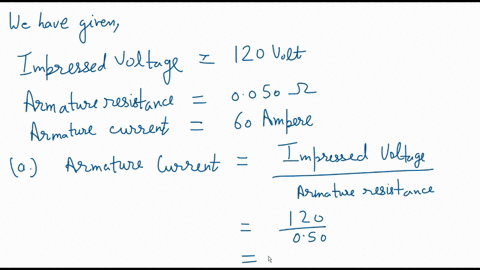 We have given,
Impressed Voltage = 120 Volt
Armature resistance = 0.050 Ω
Armature current = 60 Ampere
(a.) Armature Current = Impressed Voltage / Armature resistance
= 120 / 0.50
=